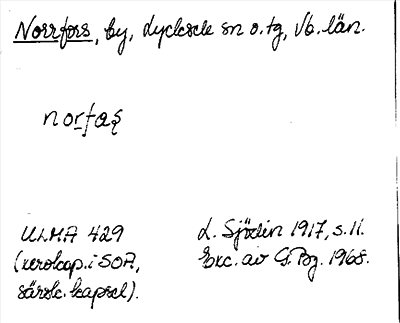 Norrfors, by, Lycksele sn o. tg, Vb. län.
norfas̨
ULMA 429
(xerokop. i SOA,
särsk. kapsel).
L. Sjödin 1917, s. 11.
Exc. av G. Bg. 1968.